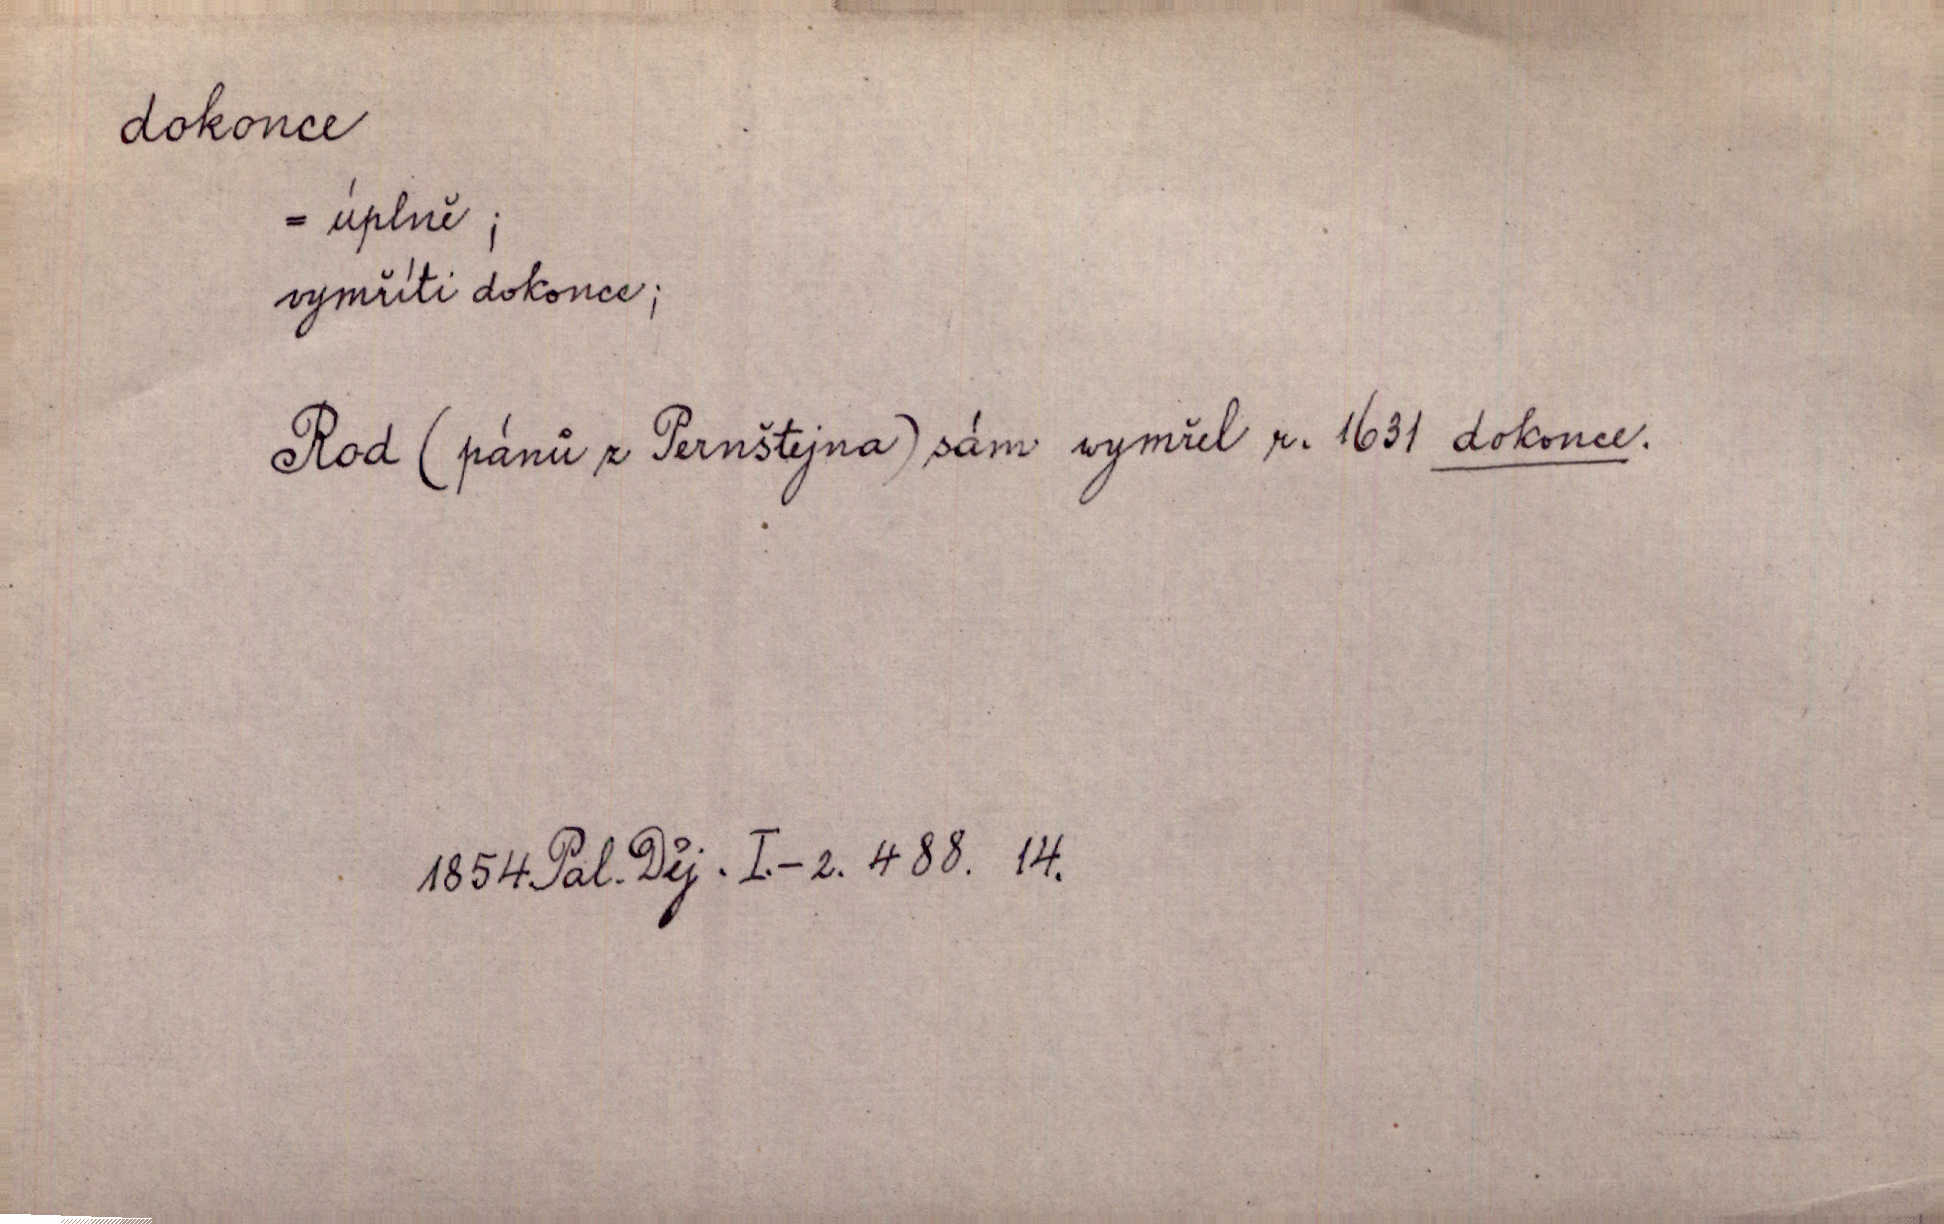 dokonce
= úplně ;
vymříti dokonce;
Rod (pánů z Pernštejna) sám wymřel r. 1631 dokonce.
1854 Pal. Děj. I.-2. 488. 14.